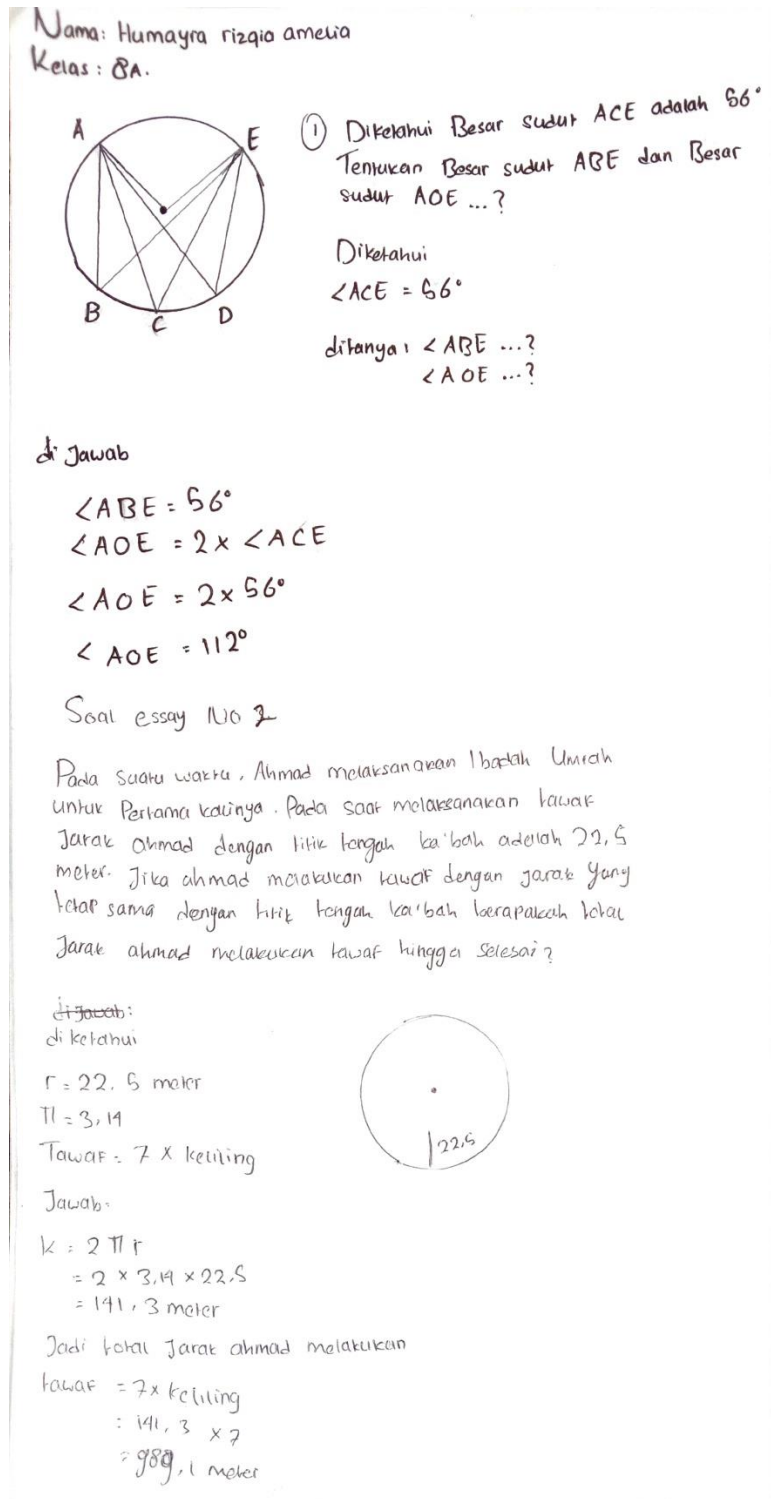 Nama: Humayra rizqia amelia
Kelas: 8A.
A
E
B
C
D
① Diketahui Besar sudut ACE adalah 56°
Tentukan Besar sudut ABE dan Besar
sudut AOE ...?
Diketahui
∠ACE = 56°
ditanya: ∠ABE ...?
∠AOE ...?
di Jawab
∠ABE = 56°
∠AOE = 2x ∠ACE
∠AOE = 2x 56°
∠AOE = 112°
Soal essay No 2
Pada suatu waktu, Ahmad melaksanakan Ibadah Umrah
untuk Pertama kalinya. Pada saat melaksanakan tawaf
Jarak ahmad dengan titik tengah ka'bah adalah 22,5
meter. Jika ahmad melakukan tawaf dengan jarak yang
tetap sama dengan titik tengah ka'bah berapakah total
Jarak ahmad melakukan tawaf hingga selesai?
di jawab:
di ketahui
r = 22.5 meter
π = 3,14
Tawaf = 7 x keliling
22,5
Jawab:
k = 2 π r
= 2 x 3,14 x 22,5
= 141,3 meter
Jadi total Jarak ahmad melakukan
tawaf = 7x keliling
: 141,3 x 7
= 989,1 meter